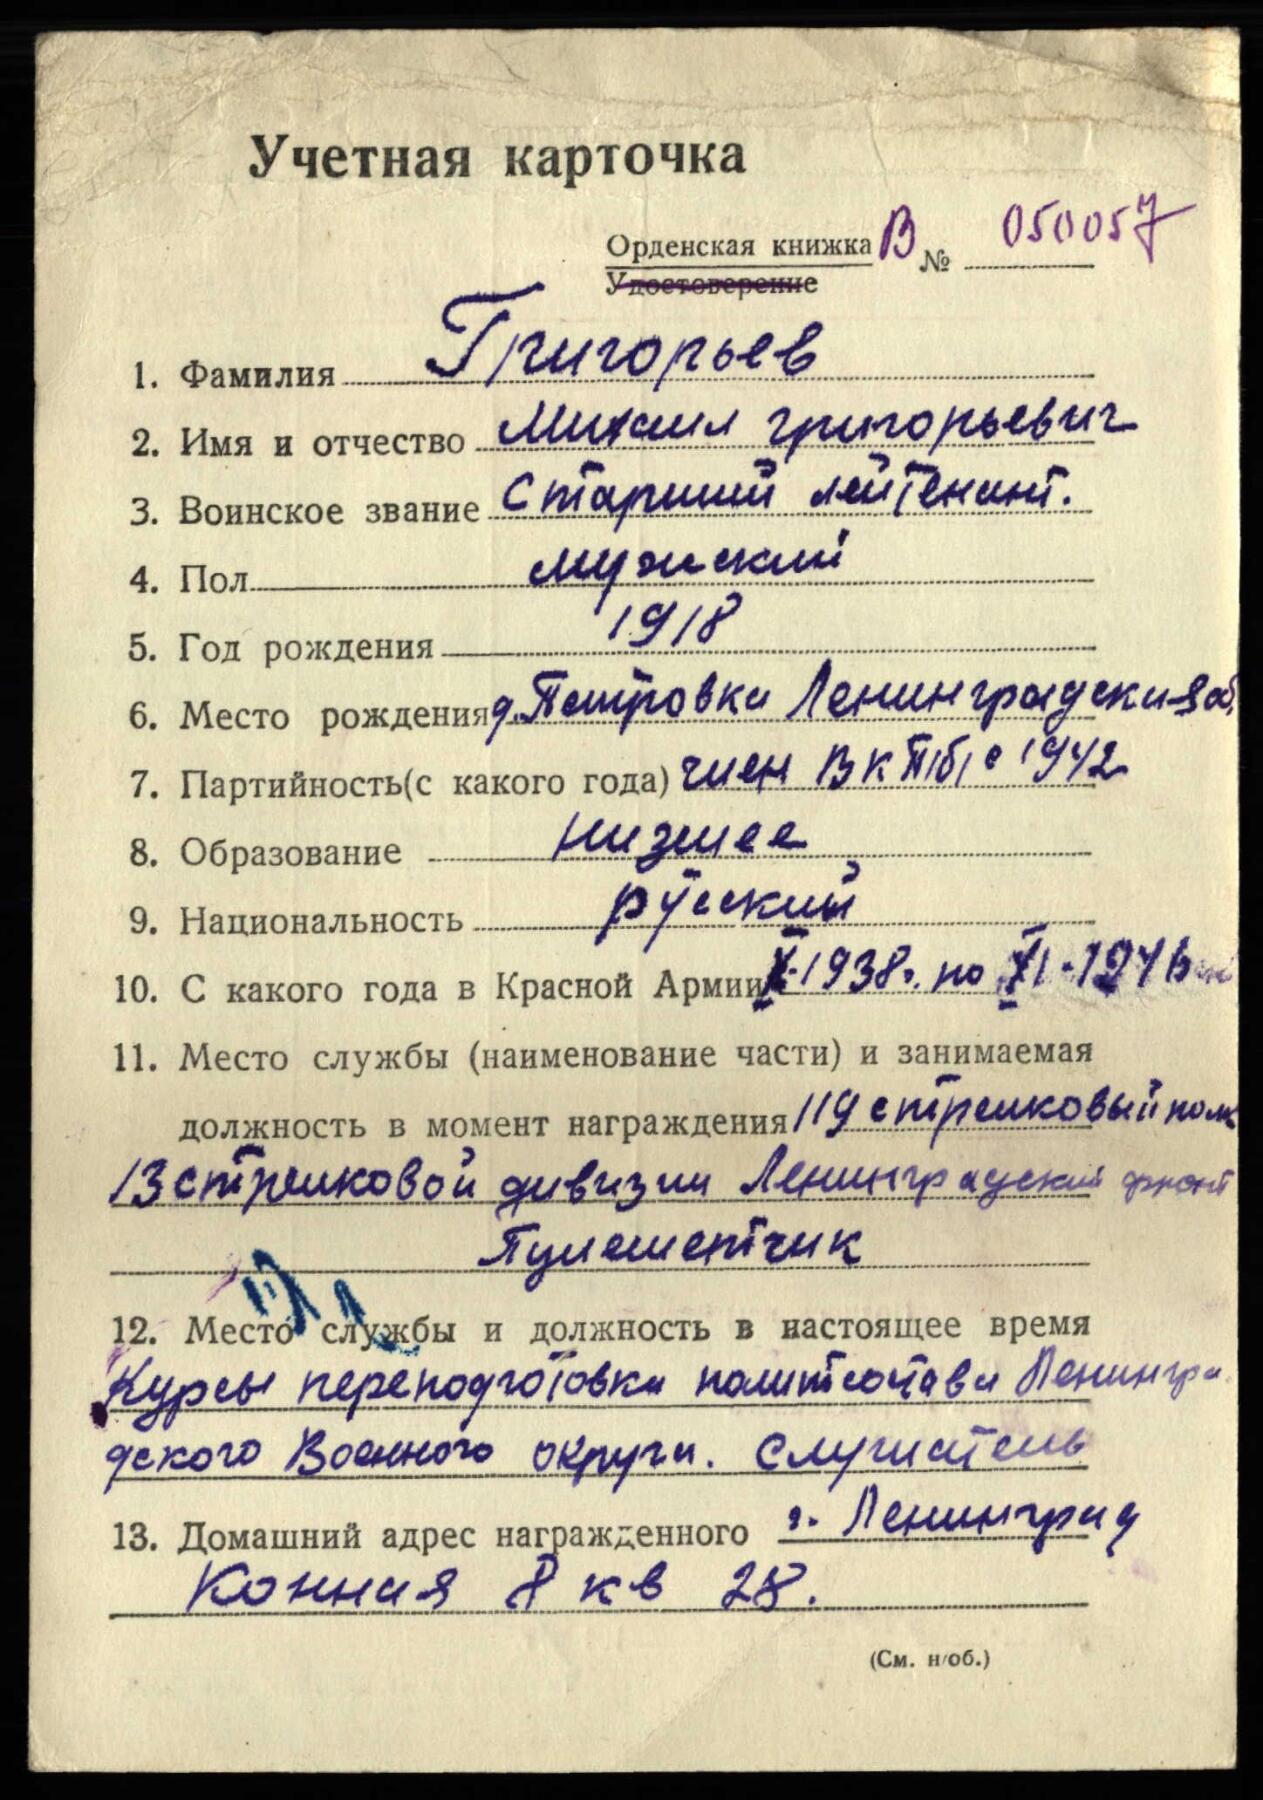 Учетная карточка
Орденская книжка В № 050057
Удостоверение
1. Фамилия Григорьев
2. Имя и отчество Михаил Григорьевич
3. Воинское звание Старший лейтенант.
4. Пол мужской
5. Год рождения 1918
6. Место рождения д. Петровка Ленинградская об.
7. Партийность (с какого года) член ВКП(б) с 1942
8. Образование низшее
9. Национальность русский
10. С какого года в Красной Армии X-1938г. по XI-1946
11. Место службы (наименование части) и занимаемая
должность в момент награждения 119 стрелковый полк
13 стрелковой дивизии Ленинградский фронт
Пулеметчик
12. Место службы и должность в настоящее время
Курсы переподготовки политсостава Ленингра
дского Военного округа. Слушатель
13. Домашний адрес награжденного г. Ленинград
Конная 8 кв 28.
(См. н/об.)